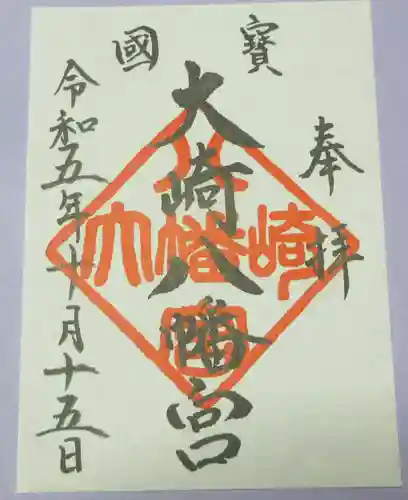 國寳
奉拝
大崎八幡宮
令和五年十月十五日
大崎八幡宮